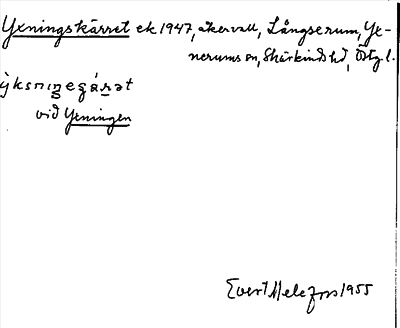 Yxningskärret ek 1947, åkervall, Långserum, Yx-
nerums sn, Skärkinds hd, Östg l.
ỳksnıŋegárət
vid Yxningen
Evert Melefors 1955